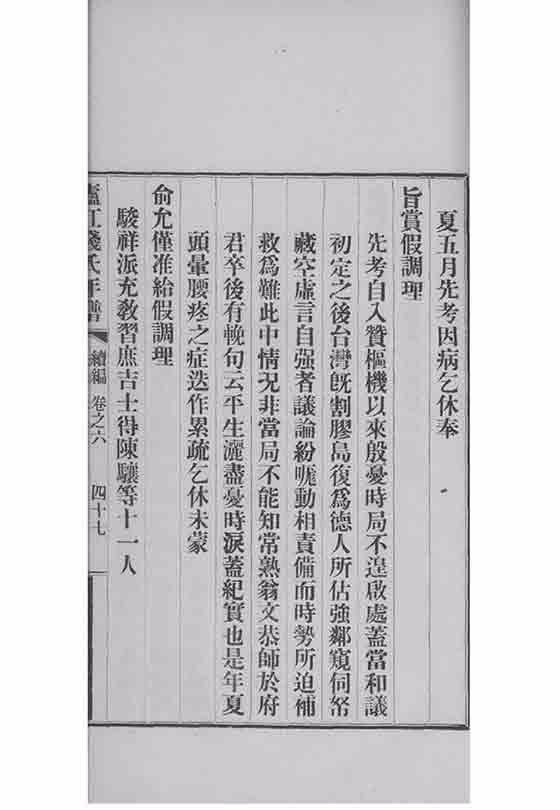 夏五月先考因病乞休奉
旨賞假調理
先考自入贊樞機以來殷憂時局不遑啟處蓋當和議
初定之後台灣旣割膠島復爲德人所佔強鄰窺伺帑
藏空虛言自强者議論紛呶動相責備而時勢所迫補
救爲難此中情況非當局不能知常熟翁文恭師於府
君卒後有輓句云平生灑盡憂時淚蓋紀實也是年夏
頭暈腰疼之症迭作累疏乞休未蒙
俞允僅准給假調理
駿祥派充教習庶吉士得陳驤等十一人
廬江錢氏年譜 續編 卷之六 四十七